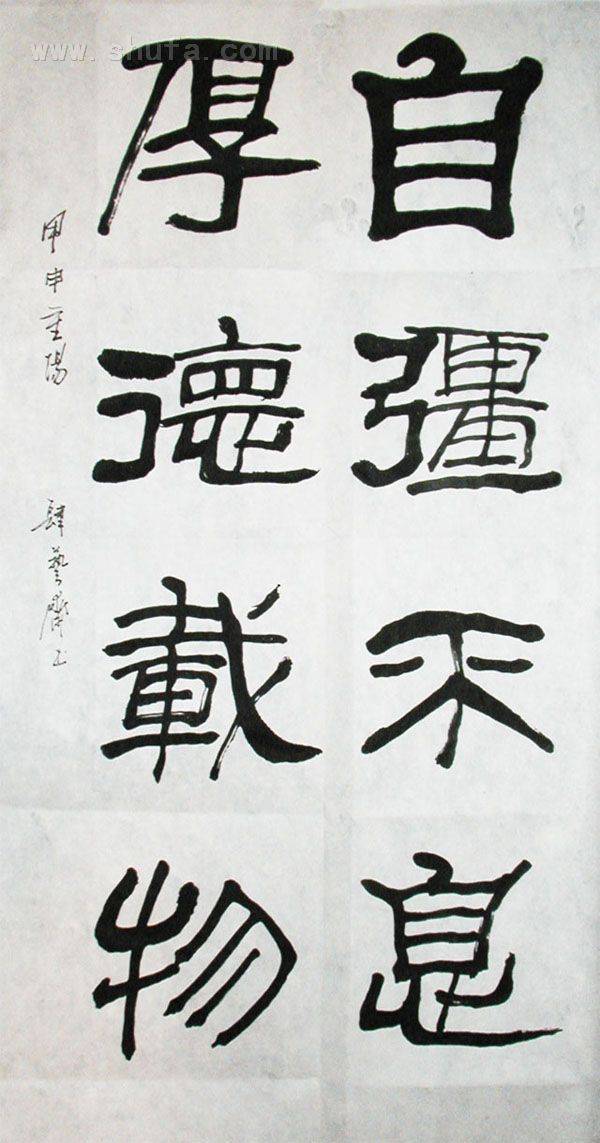 自彊不息
厚德載物
甲申重陽
肆藝齋主
www.shufa.com